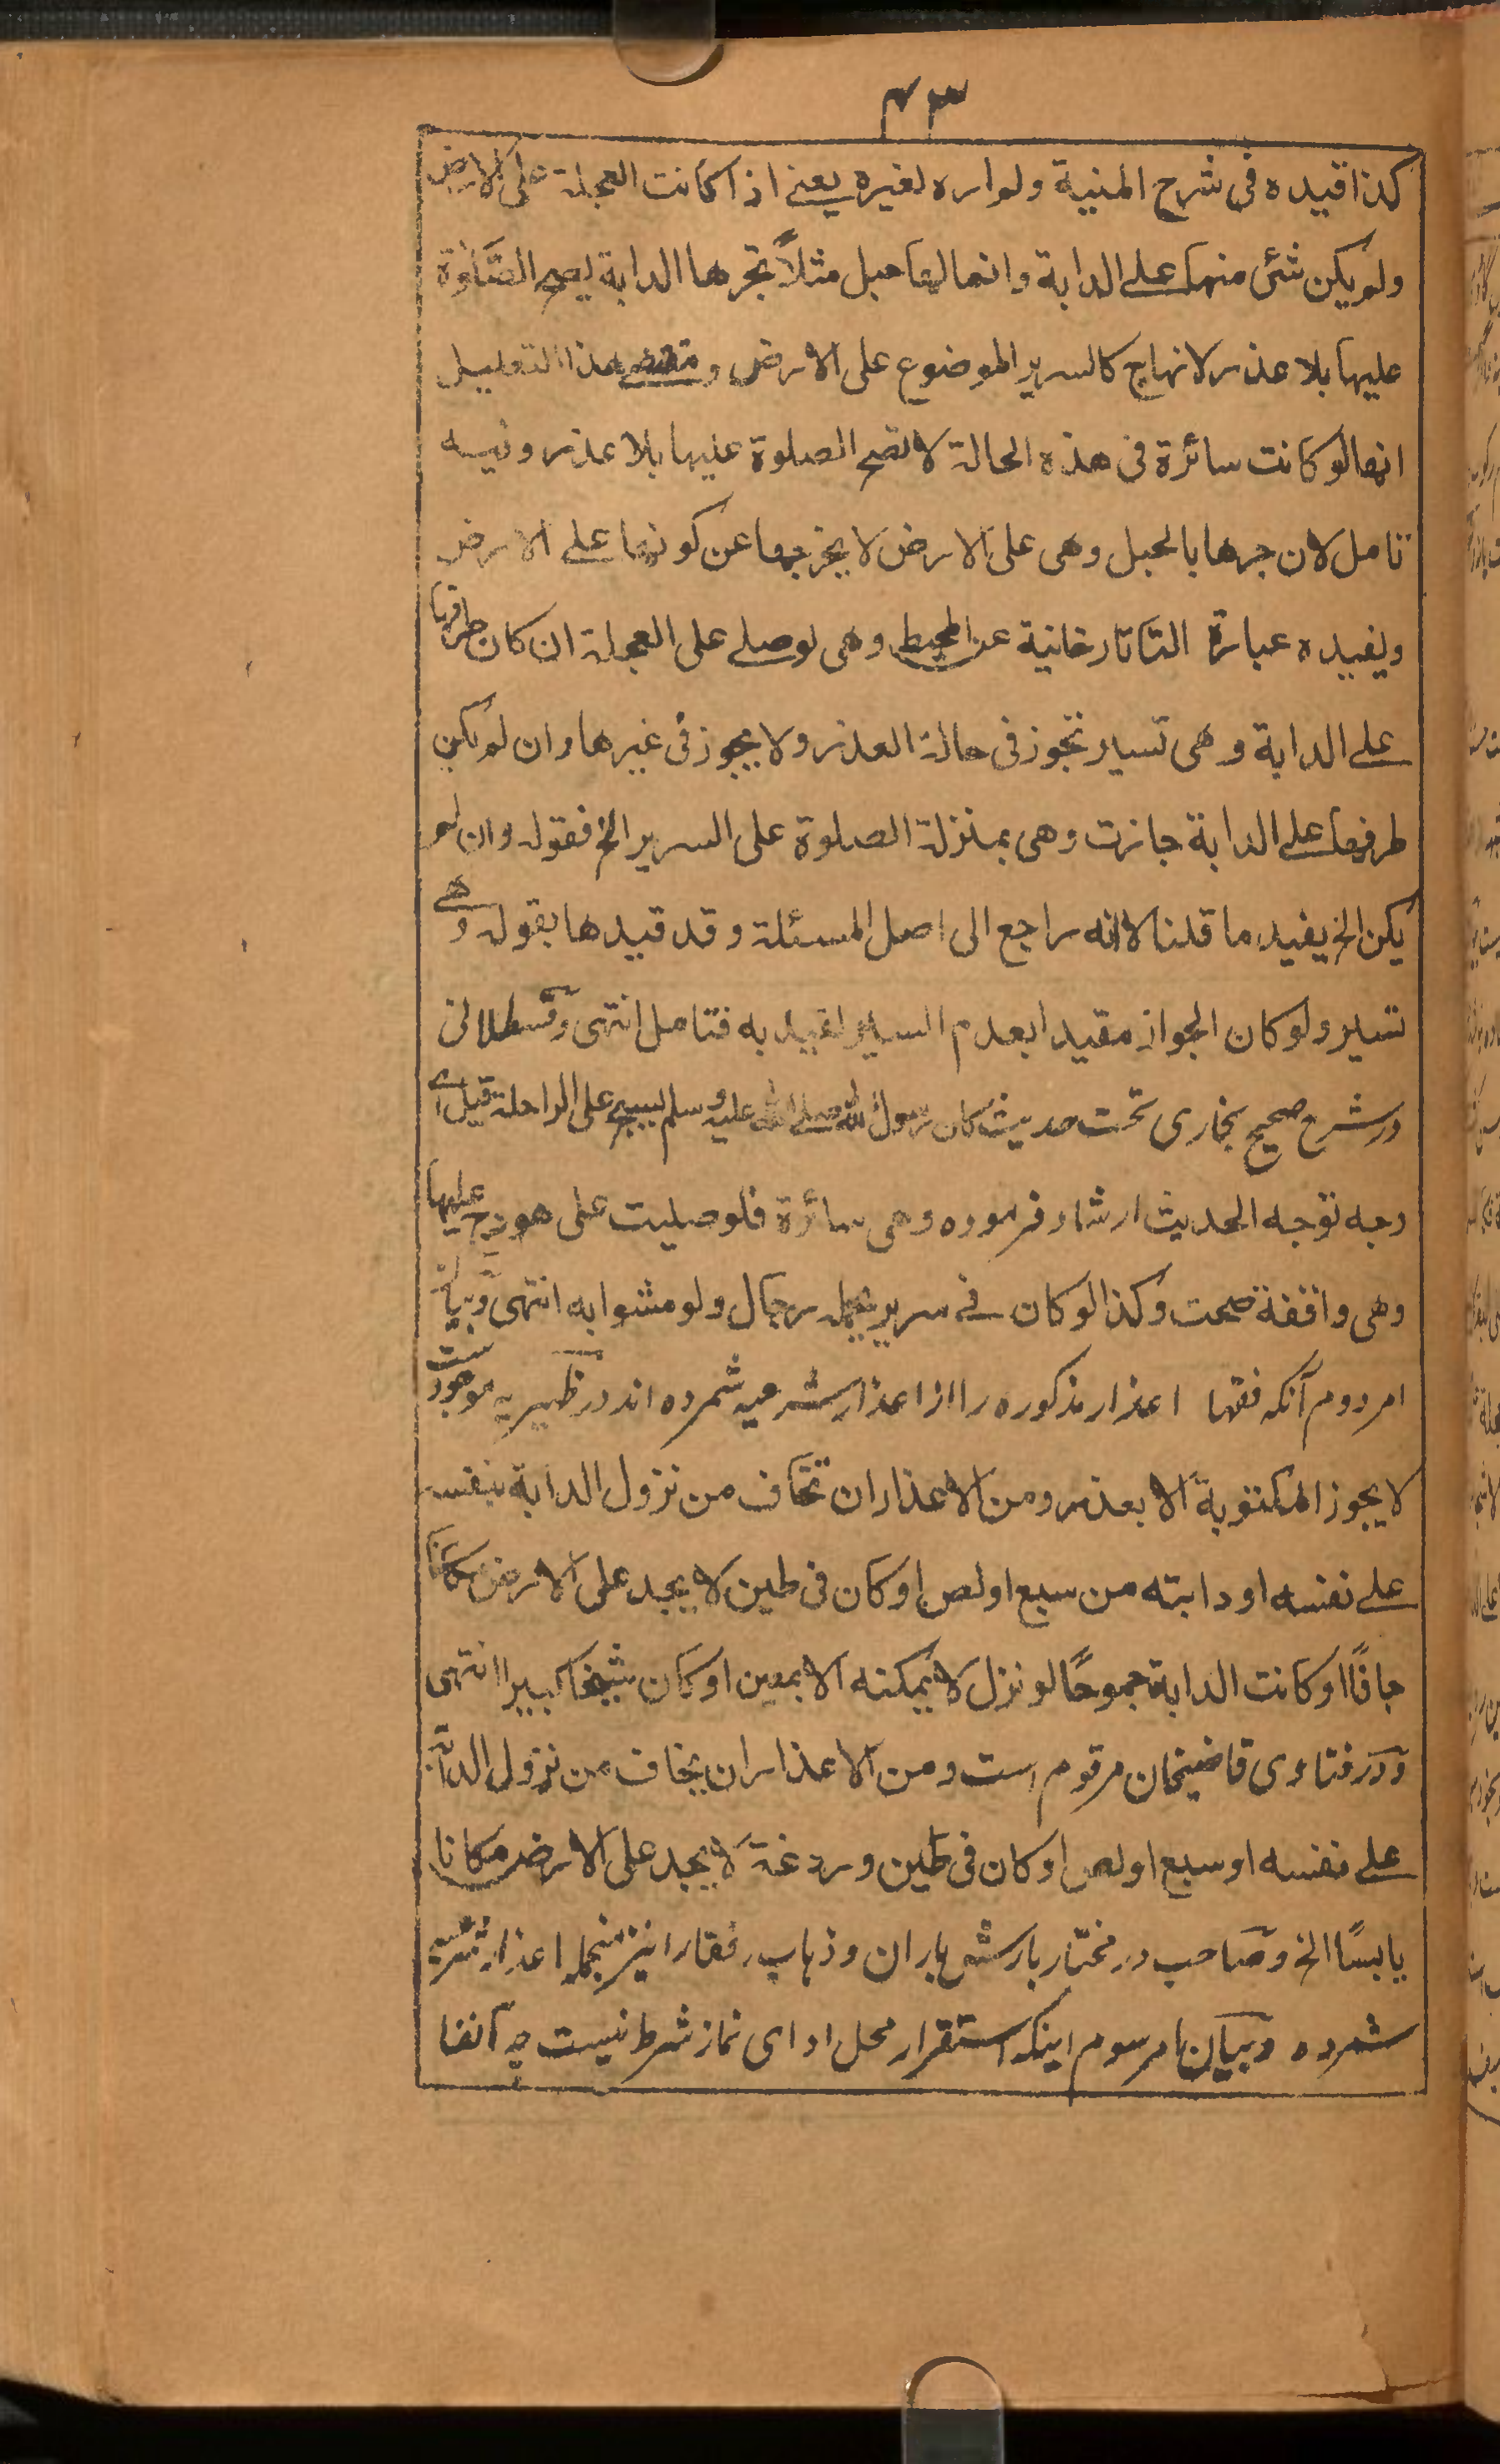 ۴۳
كذا قيده فى شرح المنية ولم اره لغيره يعنے اذا كانت العجلة على الارض
ولم يكن شئ منها على الدابة وانما لها حبل مثلاً تجرها الدابة يصح الصَّلوٰة
عليها بلا عذر لانها ح كالسرير الموضوع على الارض و مقتضى هذا التعليل
انها لو كانت سائرة فى هذه الحالة لا تصح الصلوة عليها بلا عذر وفيه
تامل لان جرها بالحبل وهى على الارض لا يخرجها عن كونها على الارض
ويفيده عبارة التاتارخانية عن المحيط وهى لو صلے على العجلة ان كان طرفها
على الدابة و هى تسير تجوز فى حالة العذر ولا يجوز فى غيرها وان لم يكن
طرفها على الدابة جازت وهى بمنزلة الصلوة على السرير الخ فقوله وان لم
يكن الخ يفيد ما قلنا لانه راجع الى اصل المسئلة و قد قيدها بقوله و هے
تسير ولو كان الجواز مقيدا بعدم السير لقيد به فتامل انتهى و قسطلانى
در شرح صحيح بخارى تحت حديث كان رسول الله صلے الله عليه وسلم يسبح على الراحلة قبل اى
وجه توجه الحديث ارشاد فرموده وهى سائرة فلو صليت على هودج عليها
وهى واقفة صحت وكذا لو كان فے سرير يحمله رجال ولو مشوا به انتهى و بيان
امر دوم آنكه فقها اعذار مذكوره را از اعذار شرعيه شمرده اند در ظهيريه موجود ست
لا يجوز المكتوبة الا بعذر ومن الاعذار ان تخاف من نزول الدابة بنفسه
على نفسه او دابته من سبع او لص او كان فى طين لا يجد على الارض مكانا
جافًا او كانت الدابة جموحًا لو نزل لا يمكنه الا بمعين او كان شيخا كبيرا انتهى
و در فتاوى قاضيخان مرقوم است و من الاعذار ان يخاف من نزول الدابة
على نفسه او سبع او لص او كان فى طين و ردغة لا يجد على الارض مكانا
يابسًا الخ و صاحب در مختار بارش باران و ذهاب رفقا را نيز منجمله اعذار شرعيه
شمرده و بيان امر سوم اينكه استقرار محل اداى نماز شرط نيست چه آنفا